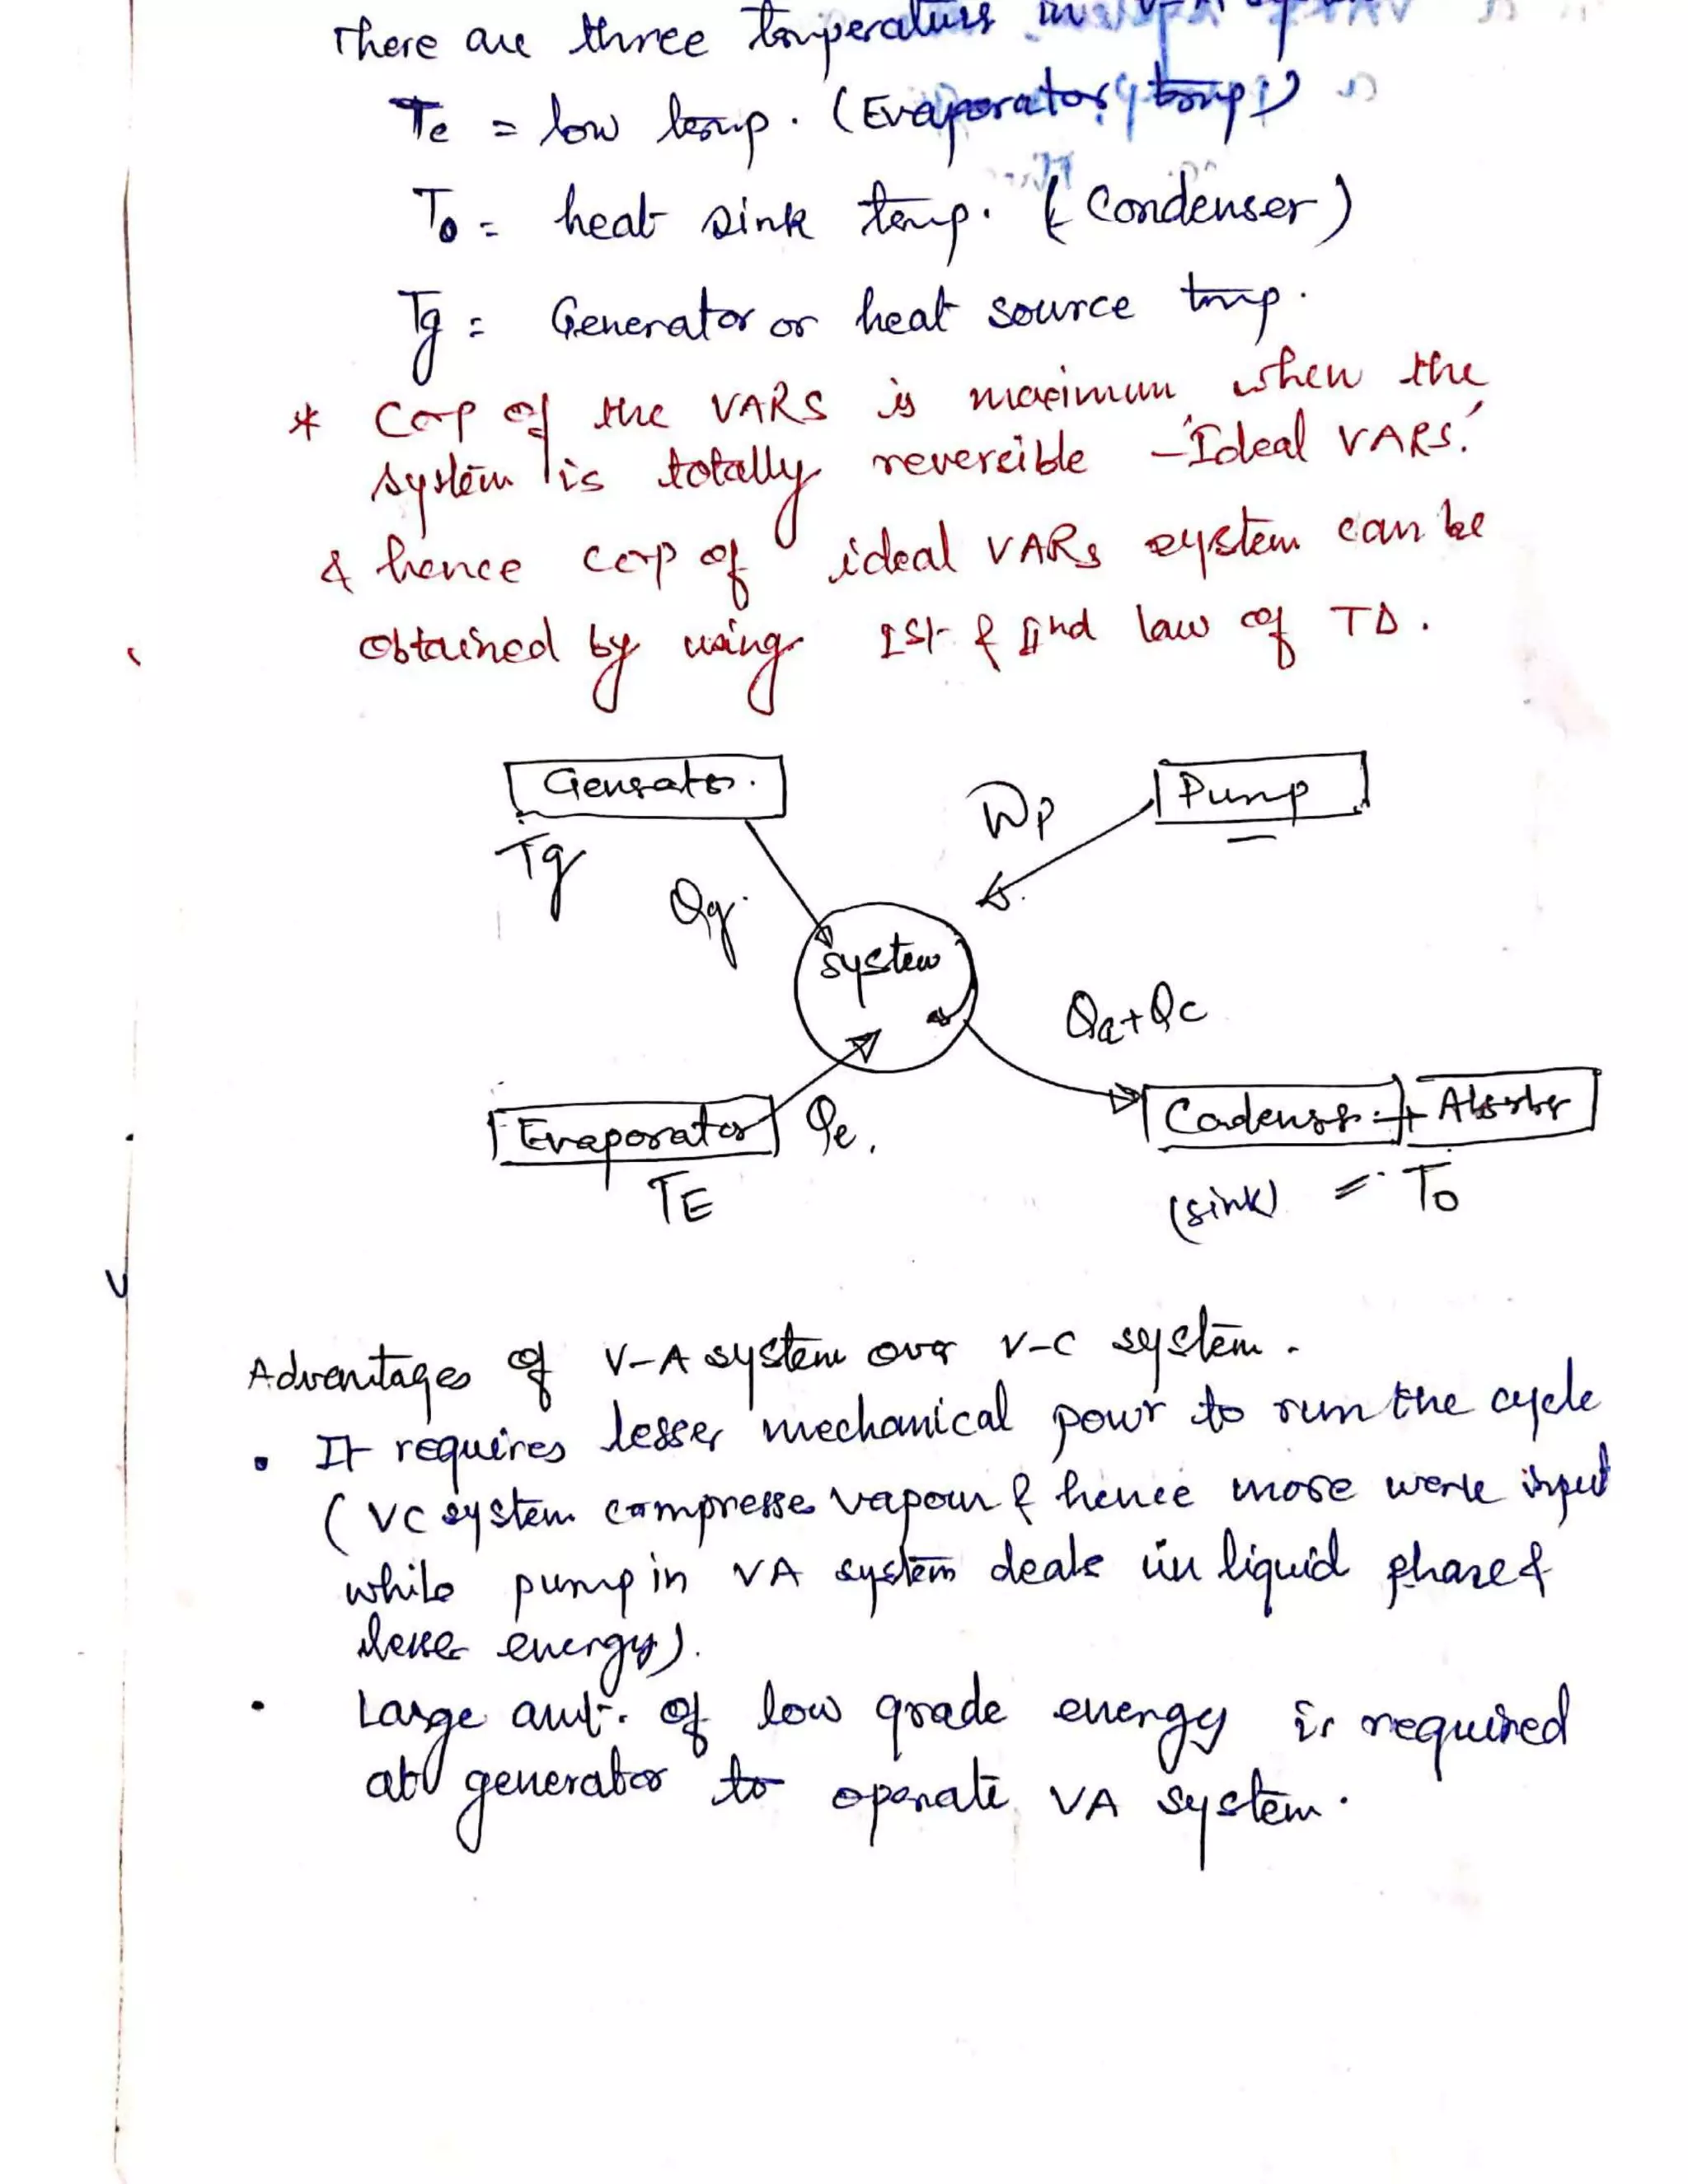 There are three temperatures in V-A
Te = low temp. (Evaporator temp)
To = heat sink temp. (Condenser)
Tg = Generator or heat source temp.
* Cop of the VARS is maximum when the
system is totally reversible - 'Ideal VARS.'
& hence cop of ideal VARs system can be
obtained by using Ist & IInd law of TD.
Generator.
Pump
Wp
Tg
Qg
system
Qa+Qc
Evaporator
Qe.
Condenser + Absorber
TE
(sink) = To
Advantages of V-A system over V-C system.
• It requires lesser mechanical powr to run the cycle
(VC system compresse vapour & hence more work input
while pump in VA system deals in liquid phase &
lesser energy).
• Large amt. of low grade energy is required
at generator to operate VA system.